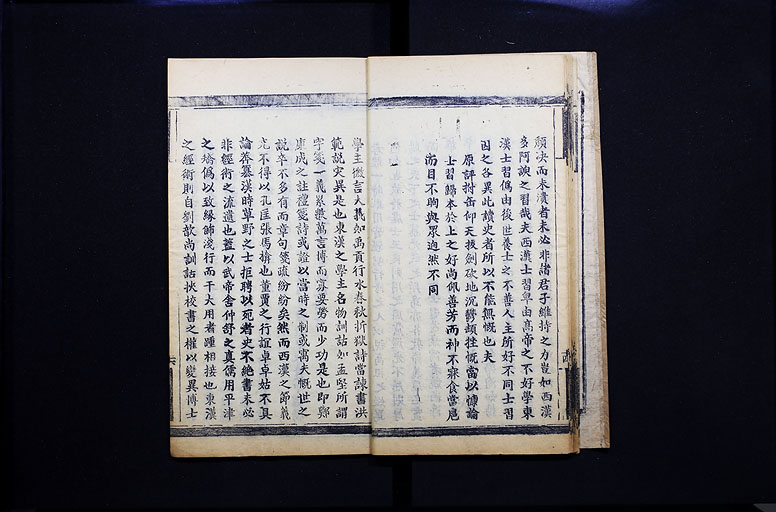 頹決而未潰者未必非諸君子維持之力豈如西漢
多阿諛之習哉夫西漢士習卑由高帝之不好學東
漢士習僞由後世養士之不善人主所好不同士習
因之各異此讀史者所以不能無慨也夫
原評拊缶仰天拔劍砍地沉鬱頓挫慨當以慷論
士習歸本於上之好尚佩善芳而神不寐食當扈
而目不眴與眾逈然不同
學主微言大義如禹貢行水春秋折獄詩當諫書洪
範說災異是也東漢之學主名物訓詁如孟堅所謂
字箋一義累數萬言博而寡要勞而少功是也即鄭
康成之註禮箋詩或證以當時之制或寓夫慨世之
說卒不多有而章句箋疏紛紛矣然而西漢之節義
尤不得以孔匡張馬槍也董賈之行誼卓卓姑不具
論莽篡漢時草野之士拒聘以死者史不絕書未必
非經術之流遺也蓋以武帝舍仲舒之真儒用平津
之矯僞以致緣飾淺行而干大用者踵相接也東漢
之經術則自劉歆尚訓詁挾校書之權以變異博士